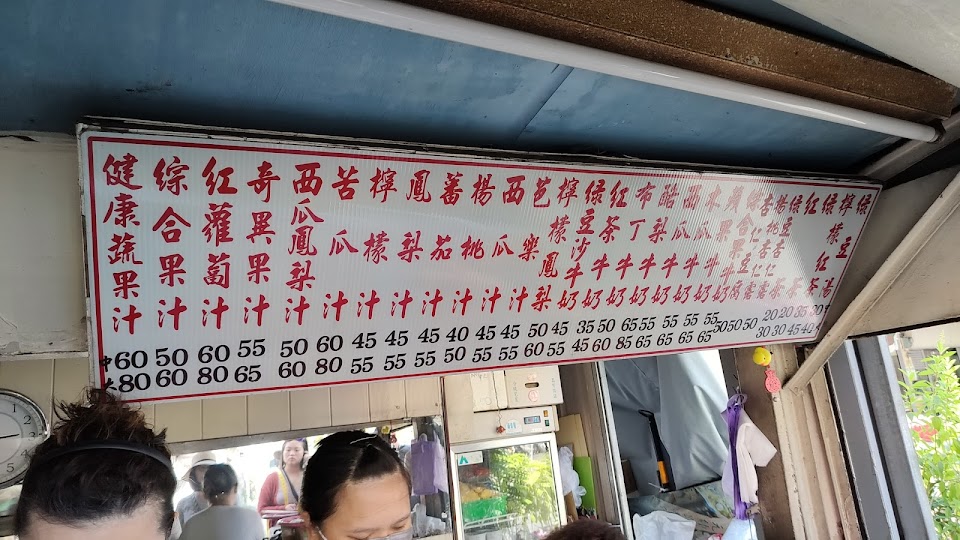 健康蔬果汁
綜合果汁
紅蘿蔔汁
奇異果汁
西瓜鳳梨汁
苦瓜汁
檸檬汁
鳳梨汁
蕃茄汁
楊桃汁
西瓜汁
芭樂汁
檸檬鳳梨
綠豆沙牛奶
紅茶牛奶
布丁牛奶
酪梨牛奶
西瓜牛奶
木瓜牛奶
果牛奶
杏仁露
楊桃
綠豆
紅茶
綠茶
檸檬紅茶
綠豆湯
中 60 50 60 55 50 60 45 45 45 40 45 45 50 45 35 50 65 55 55 55 55 50 50 50 20 20 35 30
大 80 60 80 65 60 80 55 55 55 50 55 55 60 55 45 60 85 65 65 65 65 30 30 45 40